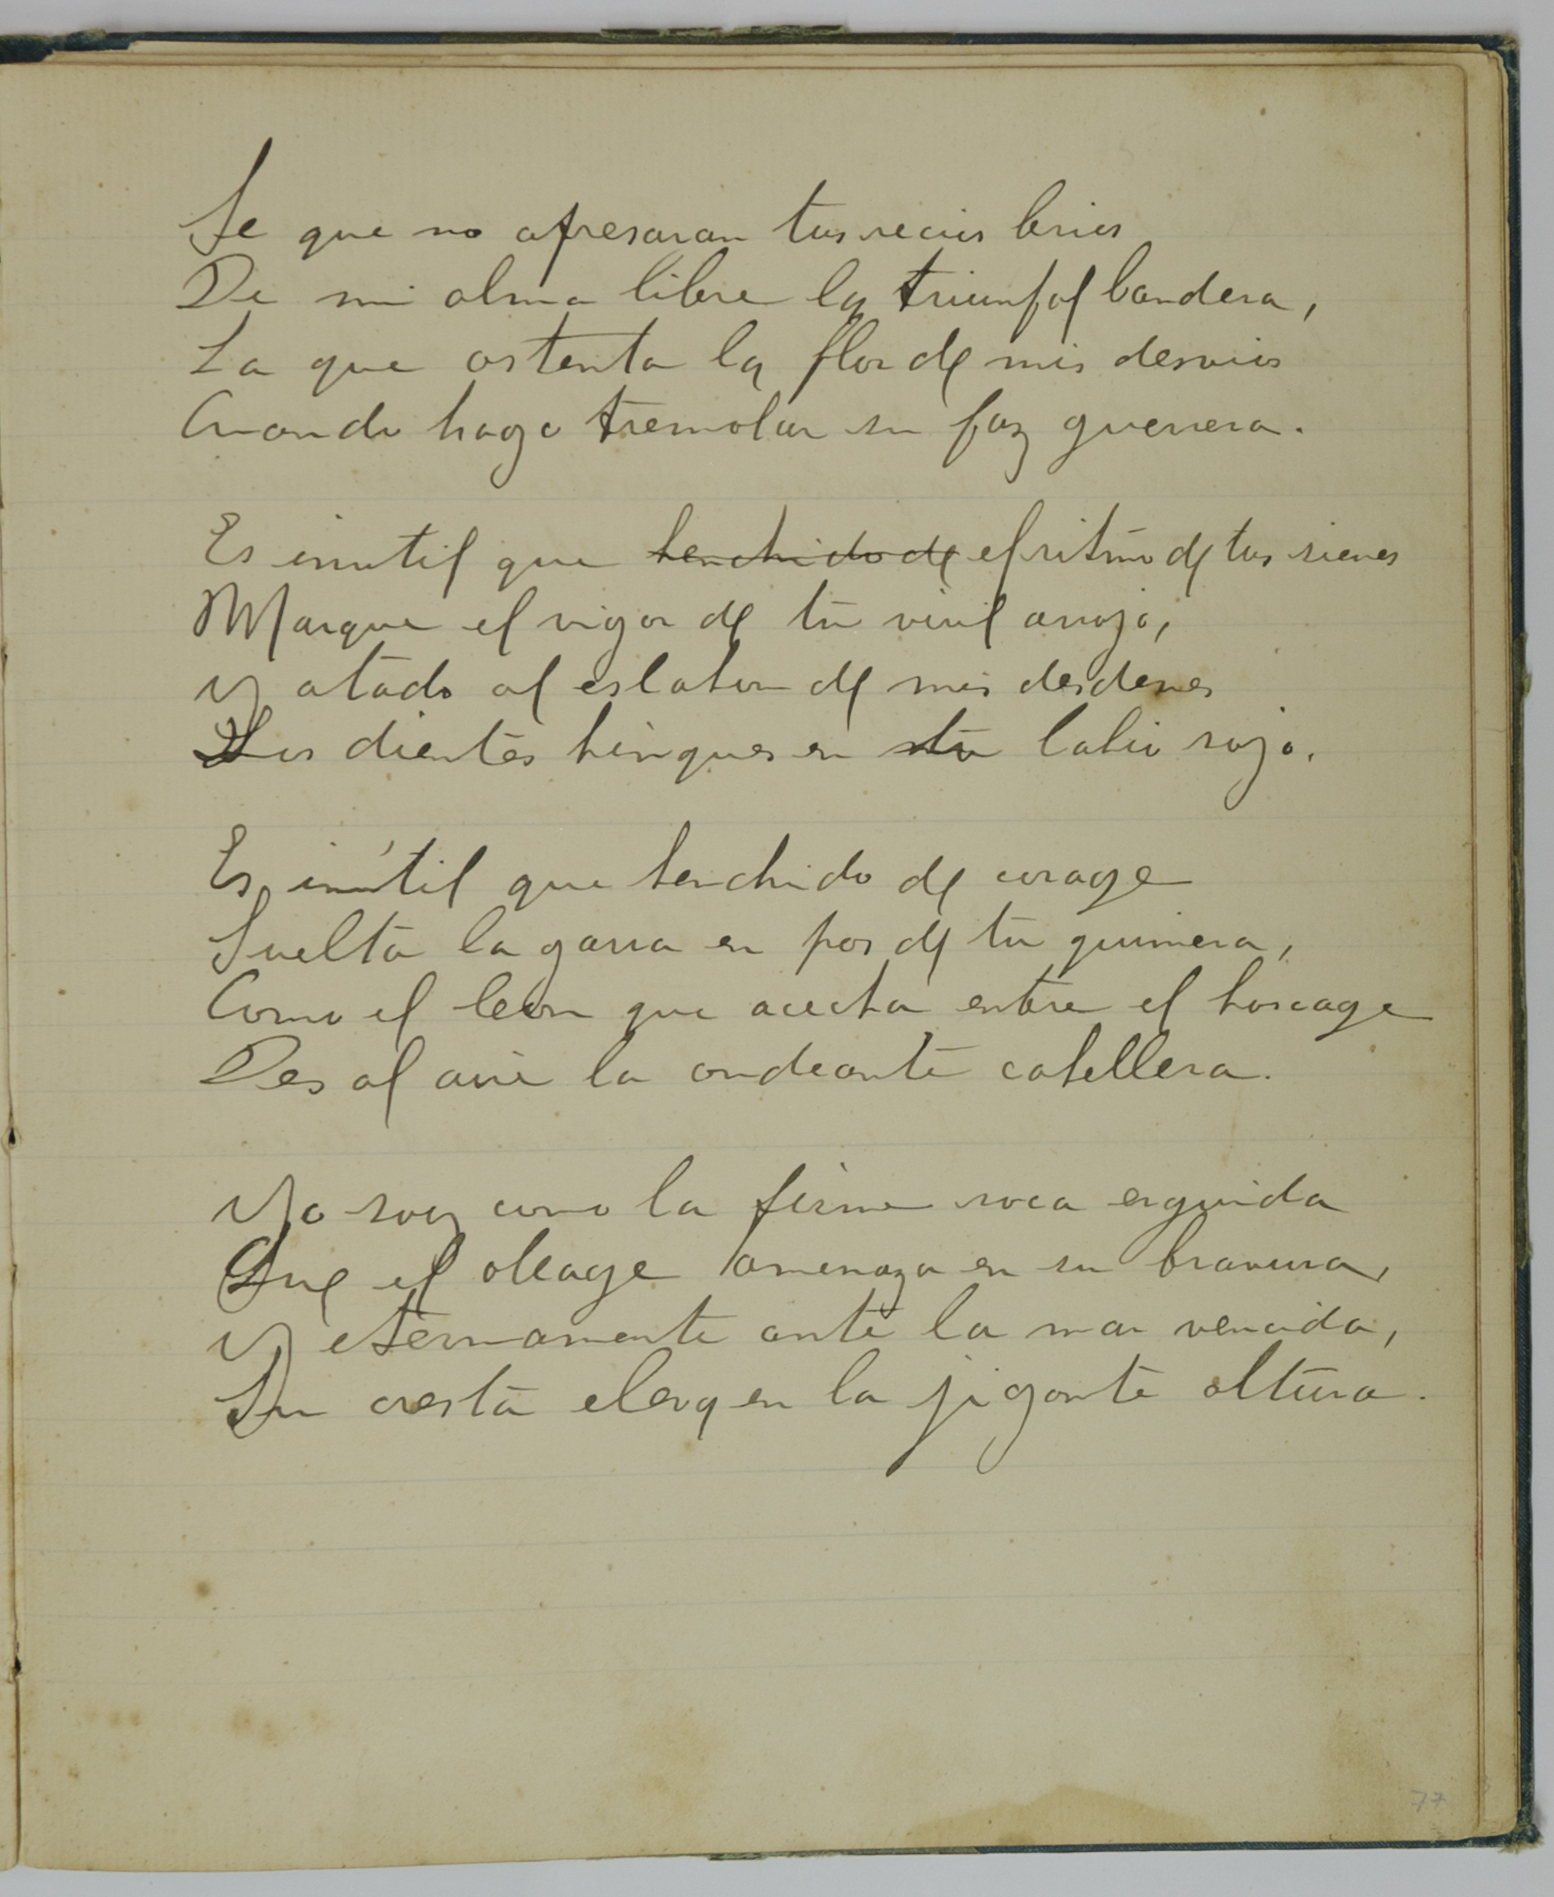 Se que no apresaran tus recios brios
De mi alma libre la triunfal bandera,
La que ostenta la flor de mis desvios
Cuando hago tremolar su faz guerrera.
Es inutil que henchido de el ritmo de tus sienes
Marque el vigor de tu viril arrojo,
Y atado al eslabon de mis desdenes
Los dientes hinques en tu labio rojo.
Es inútil que henchido de corage
Suelta la garra en pos de tu quimera,
Como el leon que acecha entre el boscage
Des al aire la ondeante cabellera.
Yo soy como la firme roca erguida
Que el oleage amenaza en su bravura,
Y eternamente ante la mar vencida,
Su cresta eleva en la jigante altura.
77